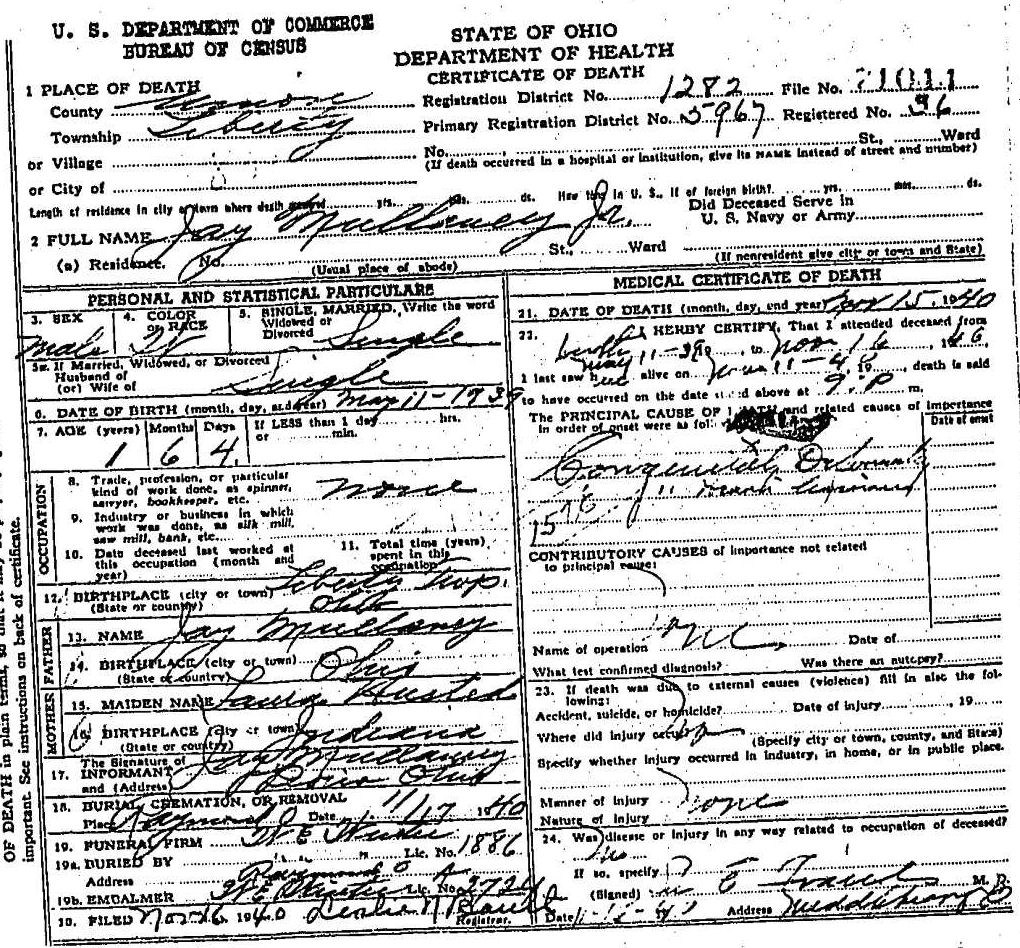 U. S. DEPARTMENT OF COMMERCE
BUREAU OF CENSUS
STATE OF OHIO
DEPARTMENT OF HEALTH
CERTIFICATE OF DEATH
1 PLACE OF DEATH
County Union
Township Liberty
or Village
or City of
Registration District No. 1282 File No. 71011
Primary Registration District No. 5967 Registered No. 96
No. St., Ward
(If death occurred in a hospital or institution, give its NAME instead of street and number)
Length of residence in city or town where death yrs. mos. ds. How long in U. S., if of foreign birth? yrs. mos. ds.
2 FULL NAME Jay Mullaney Jr.
Did Deceased Serve in
U. S. Navy or Army
(a) Residence. No. St., Ward
(Usual place of abode) (If nonresident give city or town and State)
PERSONAL AND STATISTICAL PARTICULARS
3. SEX
Male
4. COLOR
or RACE
W
5. SINGLE, MARRIED, Write the word
Widowed or
Divorced
Single
5a. If Married, Widowed, or Divorced
Husband of
(or) Wife of Single
6. DATE OF BIRTH (month, day, and year) May 11-1939
7. AGE (years) Months Days If LESS than 1 day hrs.
or min.
1 6 4
OCCUPATION
8. Trade, profession, or particular
kind of work done, as spinner,
sawyer, bookkeeper, etc. none
9. Industry or business in which
work was done, as silk mill,
saw mill, bank, etc.
10. Date deceased last worked at
this occupation (month and
year)
11. Total time (years)
spent in this
occupation
12. BIRTHPLACE (city or town) Liberty Twp.
(State or country) Ohio
FATHER
13. NAME Jay Mullaney
14. BIRTHPLACE (city or town) Ohio
(State or country)
MOTHER
15. MAIDEN NAME Laura Husted
16. BIRTHPLACE (city or town) Indiana
(State or country)
The Signature of
17. INFORMANT Jay Mullaney
and (Address) Ohio
18. BURIAL, CREMATION, OR REMOVAL
Place Raymond Date 11/17 1940
19. FUNERAL FIRM
Lic. No. 1886
19a. BURIED BY
Address Raymond O
19b. EMBALMER Lic. No. 2724
10. FILED Nov 16 1940 Leslie
Registrar.
MEDICAL CERTIFICATE OF DEATH
21. DATE OF DEATH (month, day, and year) Nov 15. 1940
22. I HERBY CERTIFY, That I attended deceased from
May 11-39, to Nov 16, 19
I last saw h alive on 19, death is said
to have occurred on the date above at 9:P m.
The PRINCIPAL CAUSE OF and related causes of
in order of onset were as
Importance
Date of onset
Congenital
" Heart
157b
CONTRIBUTORY CAUSES of importance not related
to principal cause:
Name of operation Date of
What test confirmed diagnosis? Was there an autopsy?
23. If death was due to external causes (violence) fill in also the fol-
lowing:
Accident, suicide, or homicide? Date of injury, 19
Where did injury occur
(Specify city or town, county, and State)
Specify whether injury occurred in industry, in home, or in public place.
Manner of injury none
Nature of injury
24. Was disease or injury in any way related to occupation of deceased?
no
If so, specify
(Signed) E M. D.
Date Address Middleburg O
OF DEATH in plain terms, so that it may be
important. See instructions on back of certificate.